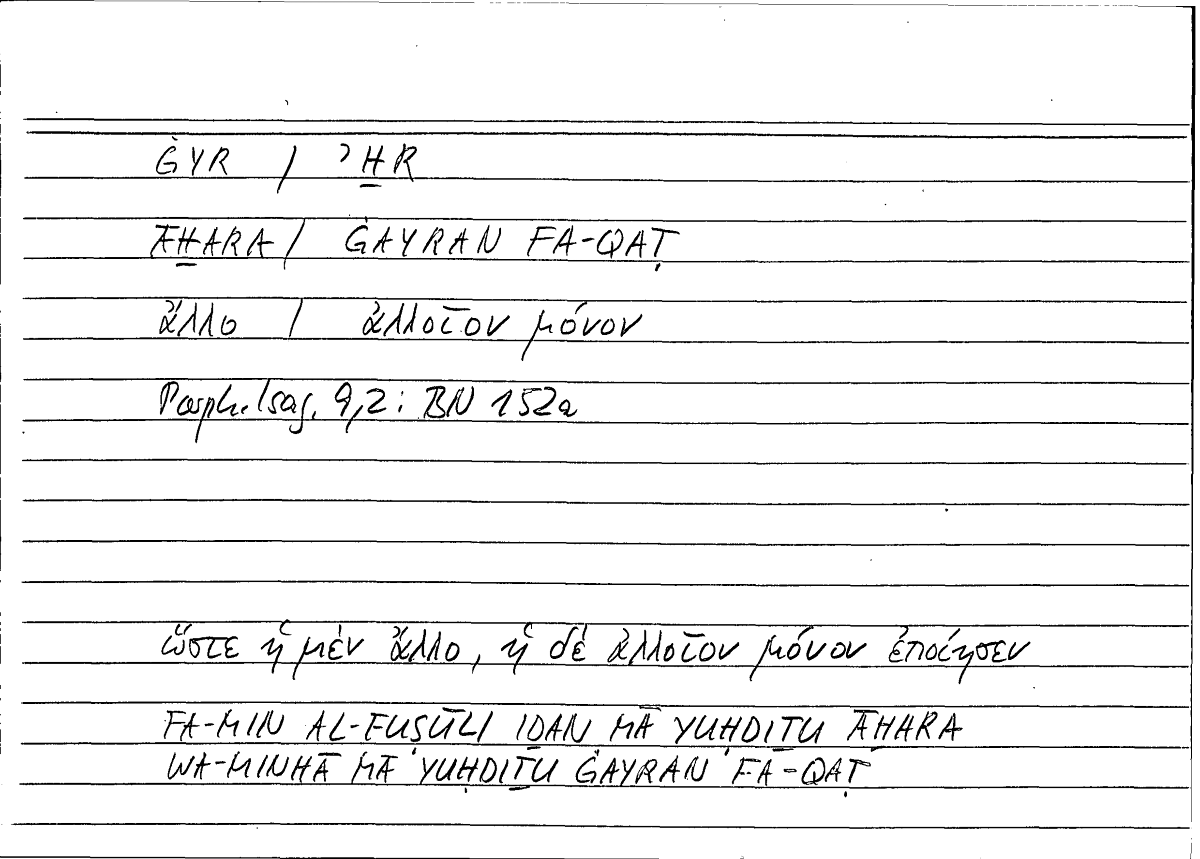 ĠYR / ʾH̱R
ĀH̱ARA / ĠAYRAN FA-QAṬ
ἄλλο / ἀλλοῖον μόνον
Porph. Isag. 9,2: BN 152a
ὥστε ἡ μὲν ἄλλο, ἡ δὲ ἀλλοῖον μόνον ἐποίησεν
FA-MIN AL-FUṢŪLI IḎAN MĀ YUḤDIṮU ĀH̱ARA
WA-MINHĀ MĀ YUḤDIṮU ĠAYRAN FA-QAṬ